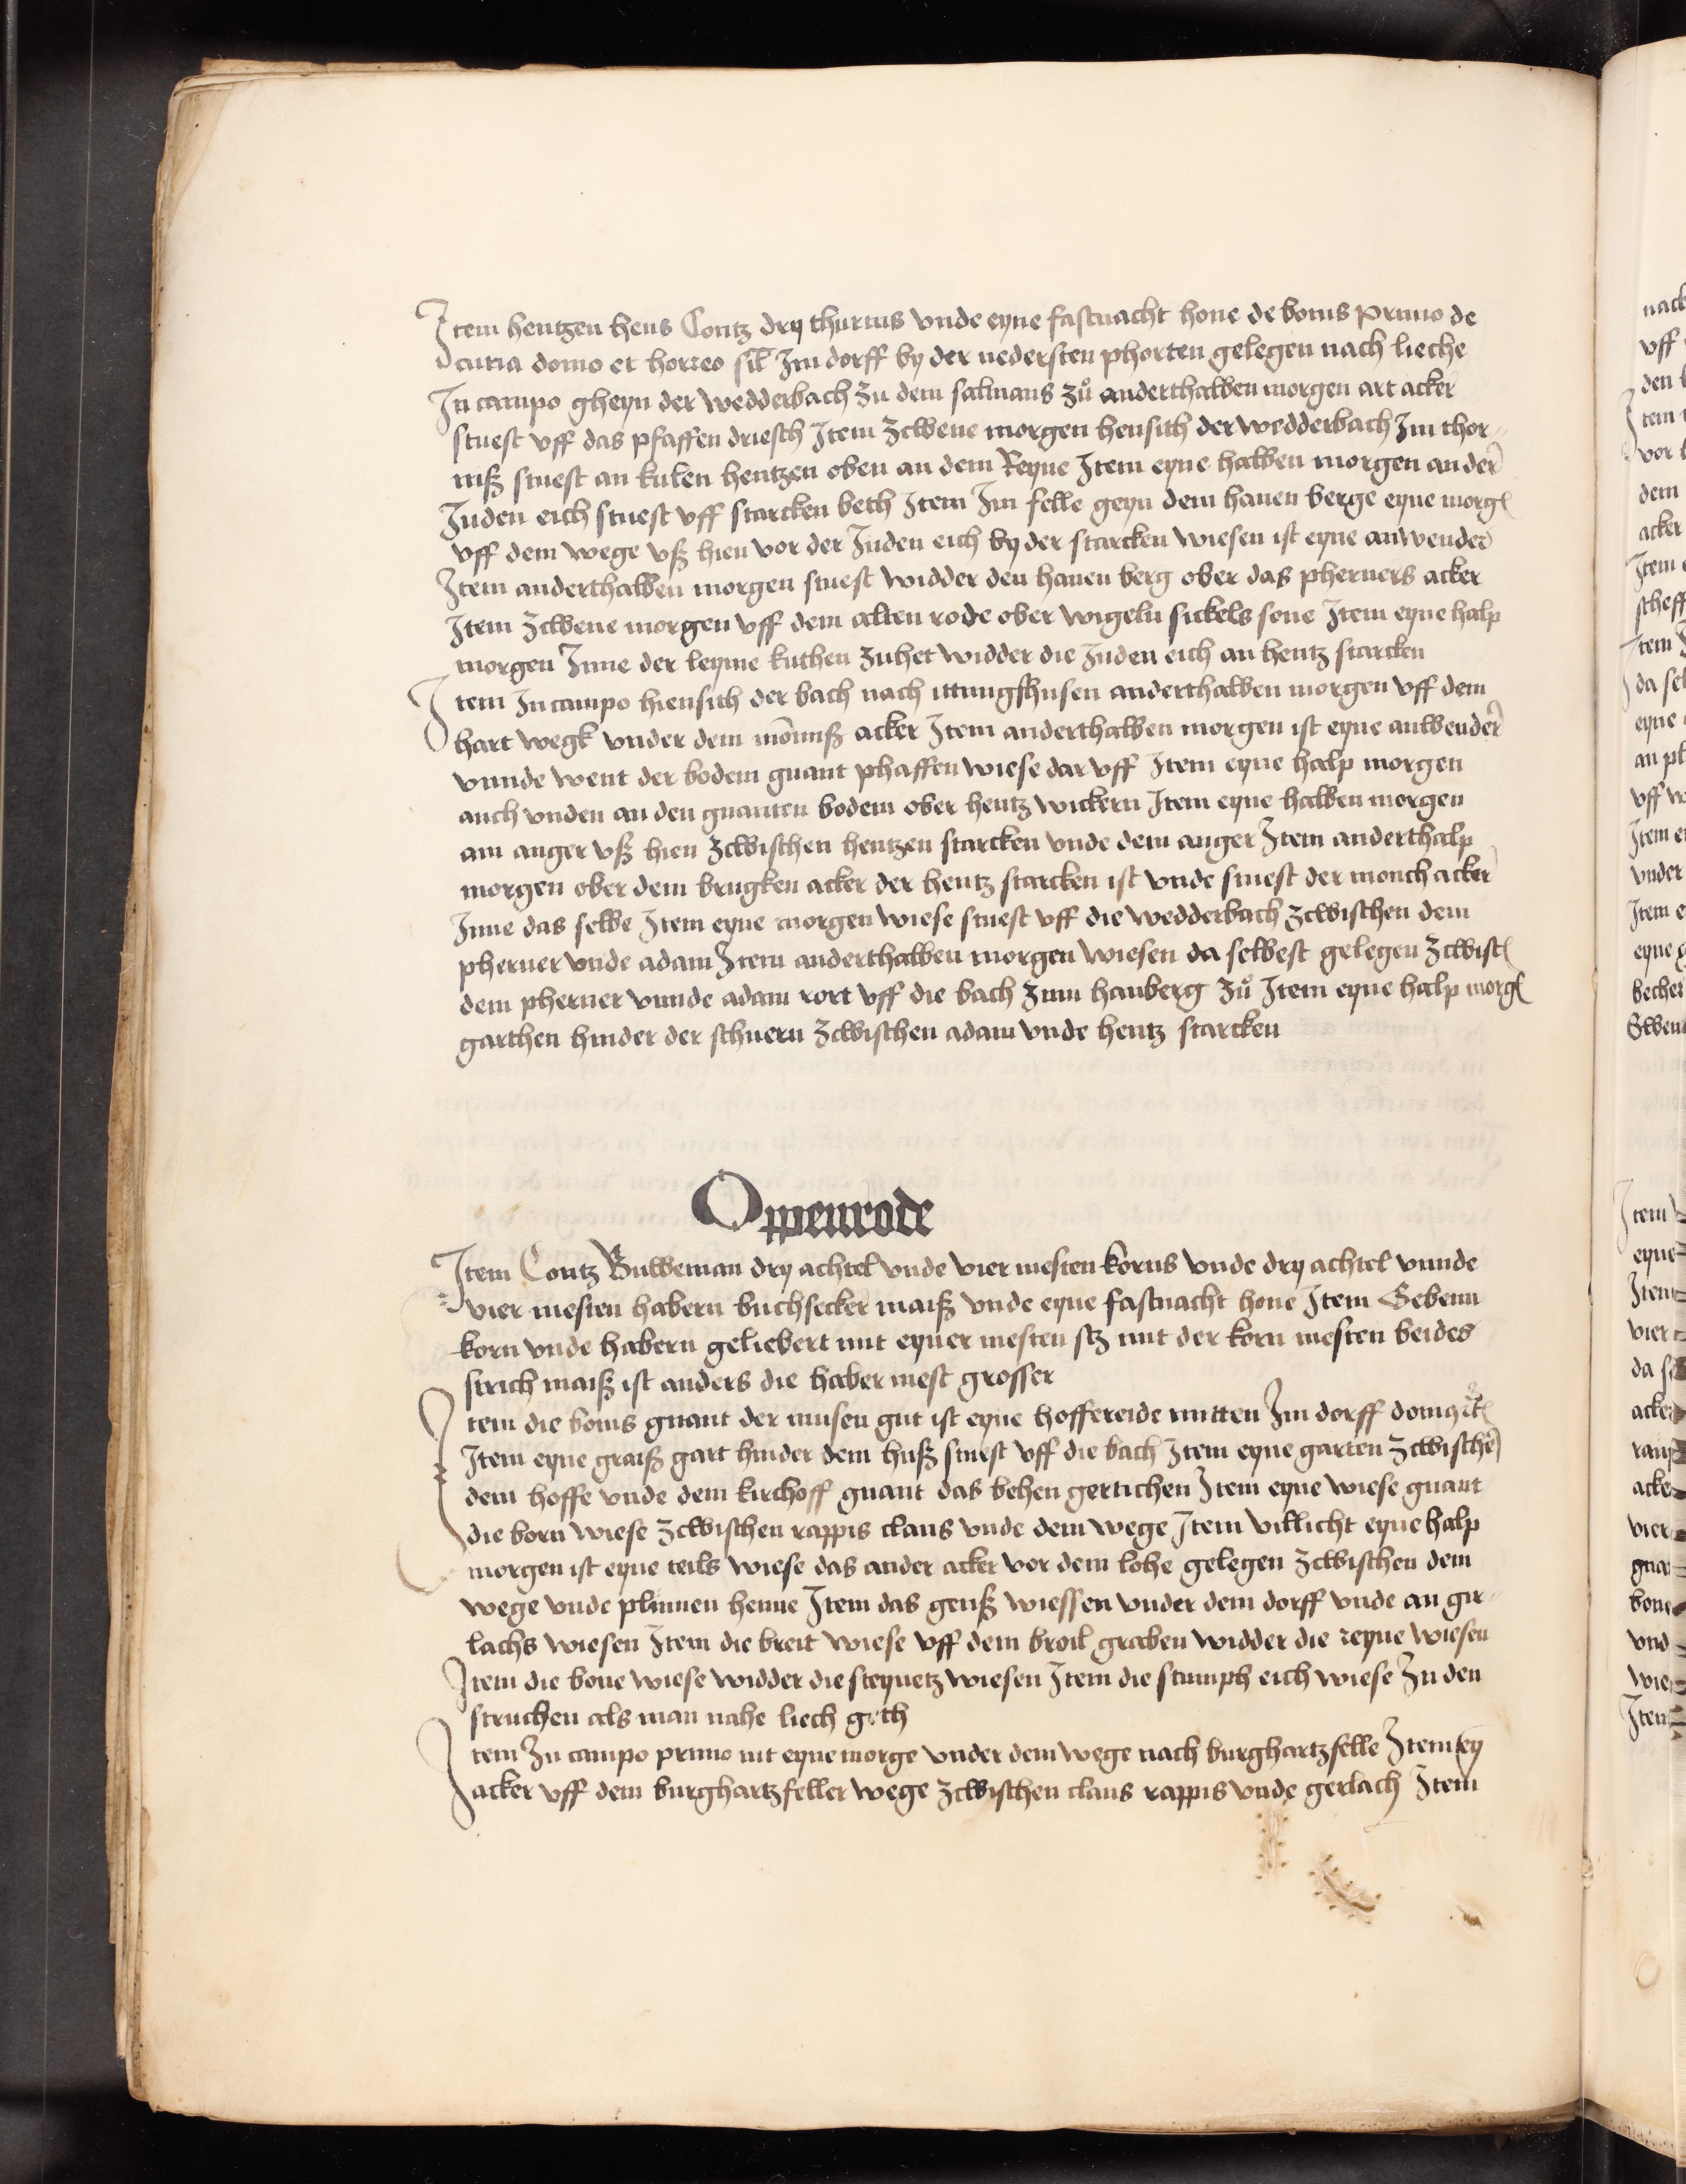 Item hentzen hens Contz dry thurnus vnde eyne fastnacht hone de bonis Primo de
curia domo et horreo sil Im dorff by der nedersten phorten gelegen nach lieche
In campo gheyn der wedderbach zu dem salmans zů anderthalben morgen art acker
stuest vff das pfaffen driesch Item zcwene morgen hensith der wedderbach Im thor-
niß stuest an kulen hentzen oben an dem Reyne Item eyne halben morgen an der
Juden eich stuest vff starcken beth Item Im felle geyn dem hanen berge eyne morg
vff dem wege vß hien vor der Juden eich by der starcken wiesen ist eyne anwender
Item anderthalben morgen stuest widder den hanen berg ober das pherners acker
Item zcwene morgen vff dem alten rode ober wigeln sickels sone Item eyne halp
morgen Inne der leyme kuthen zuhet widder die Juden eich an hentz starcken
Item In campo hiensith der bach nach ittungshusen anderthalben morgen vff dem
hart wegk vnder dem mönniß acker Item anderthalben morgen ist eyne anwender
vnnde went der bodem gnant phaffen wiese dar vff Item eyne halp morgen
auch vnden an den gnanten bodem ober hentz wickern Item eyne halben morgen
am anger vß hien zcwischen hentzen starcken vnde dem anger Item anderthalp
morgen ober dem brugken acker der hentz starcken ist vnde stuest der monch acker
Inne das selbe Item eyne morgen wiese stuest vff die wedderbach zcwischen dem
pherner vnde adam Item anderthalben morgen wiesen da selbest gelegen zcwisch
dem pherner vnnde adam rort vff die bach zum hanberg zů Item eyne halp morg
garthen hinder der schuern zcwischen adam vnde hentz starcken
Oppenrode
Item Contz Buweman dry achtel vnde vier mesten korns vnde dry achtel vnnde
vier mesten habern buchsecker maiß vnde eyne fastnacht hone Item Sebenn
korn vnde habern geliebert mit eyner mesten sz mit der korn mesten beides
strich maiß ist anders die haber mest grosser
Item die bonis gnant der musen gut ist eyne hoffereide mitten Im dorff
Item eyne graiß gart hinder dem huß stuest vff die bach Item eyne garten zcwische
dem hoffe vnde dem kirchoff gnant das behen gertichen Item eyne wiese gnant
die born wiese zcwischen rappis claus vnde dem wege Item villicht eyne halp
morgen ist eyne teils wiese das ander acker vor dem lohe gelegen zcwischen dem
wege vnde plumen henne Item das genß wiessen vnder dem dorff vnde an gir-
lachs wiesen Item die breit wiese vff dem broil graben widder die reyne wiesen
Item die bone wiese widder die steynetz wiesen Item die stumph eich wiese In den
struchen als man nahe liech geth
Item In campo primo nit eyne morge vnder dem wege nach burghartzfelle Item ey
acker vff dem burghartzfeller wege zcwischen claus rappis vnde gerlach Item